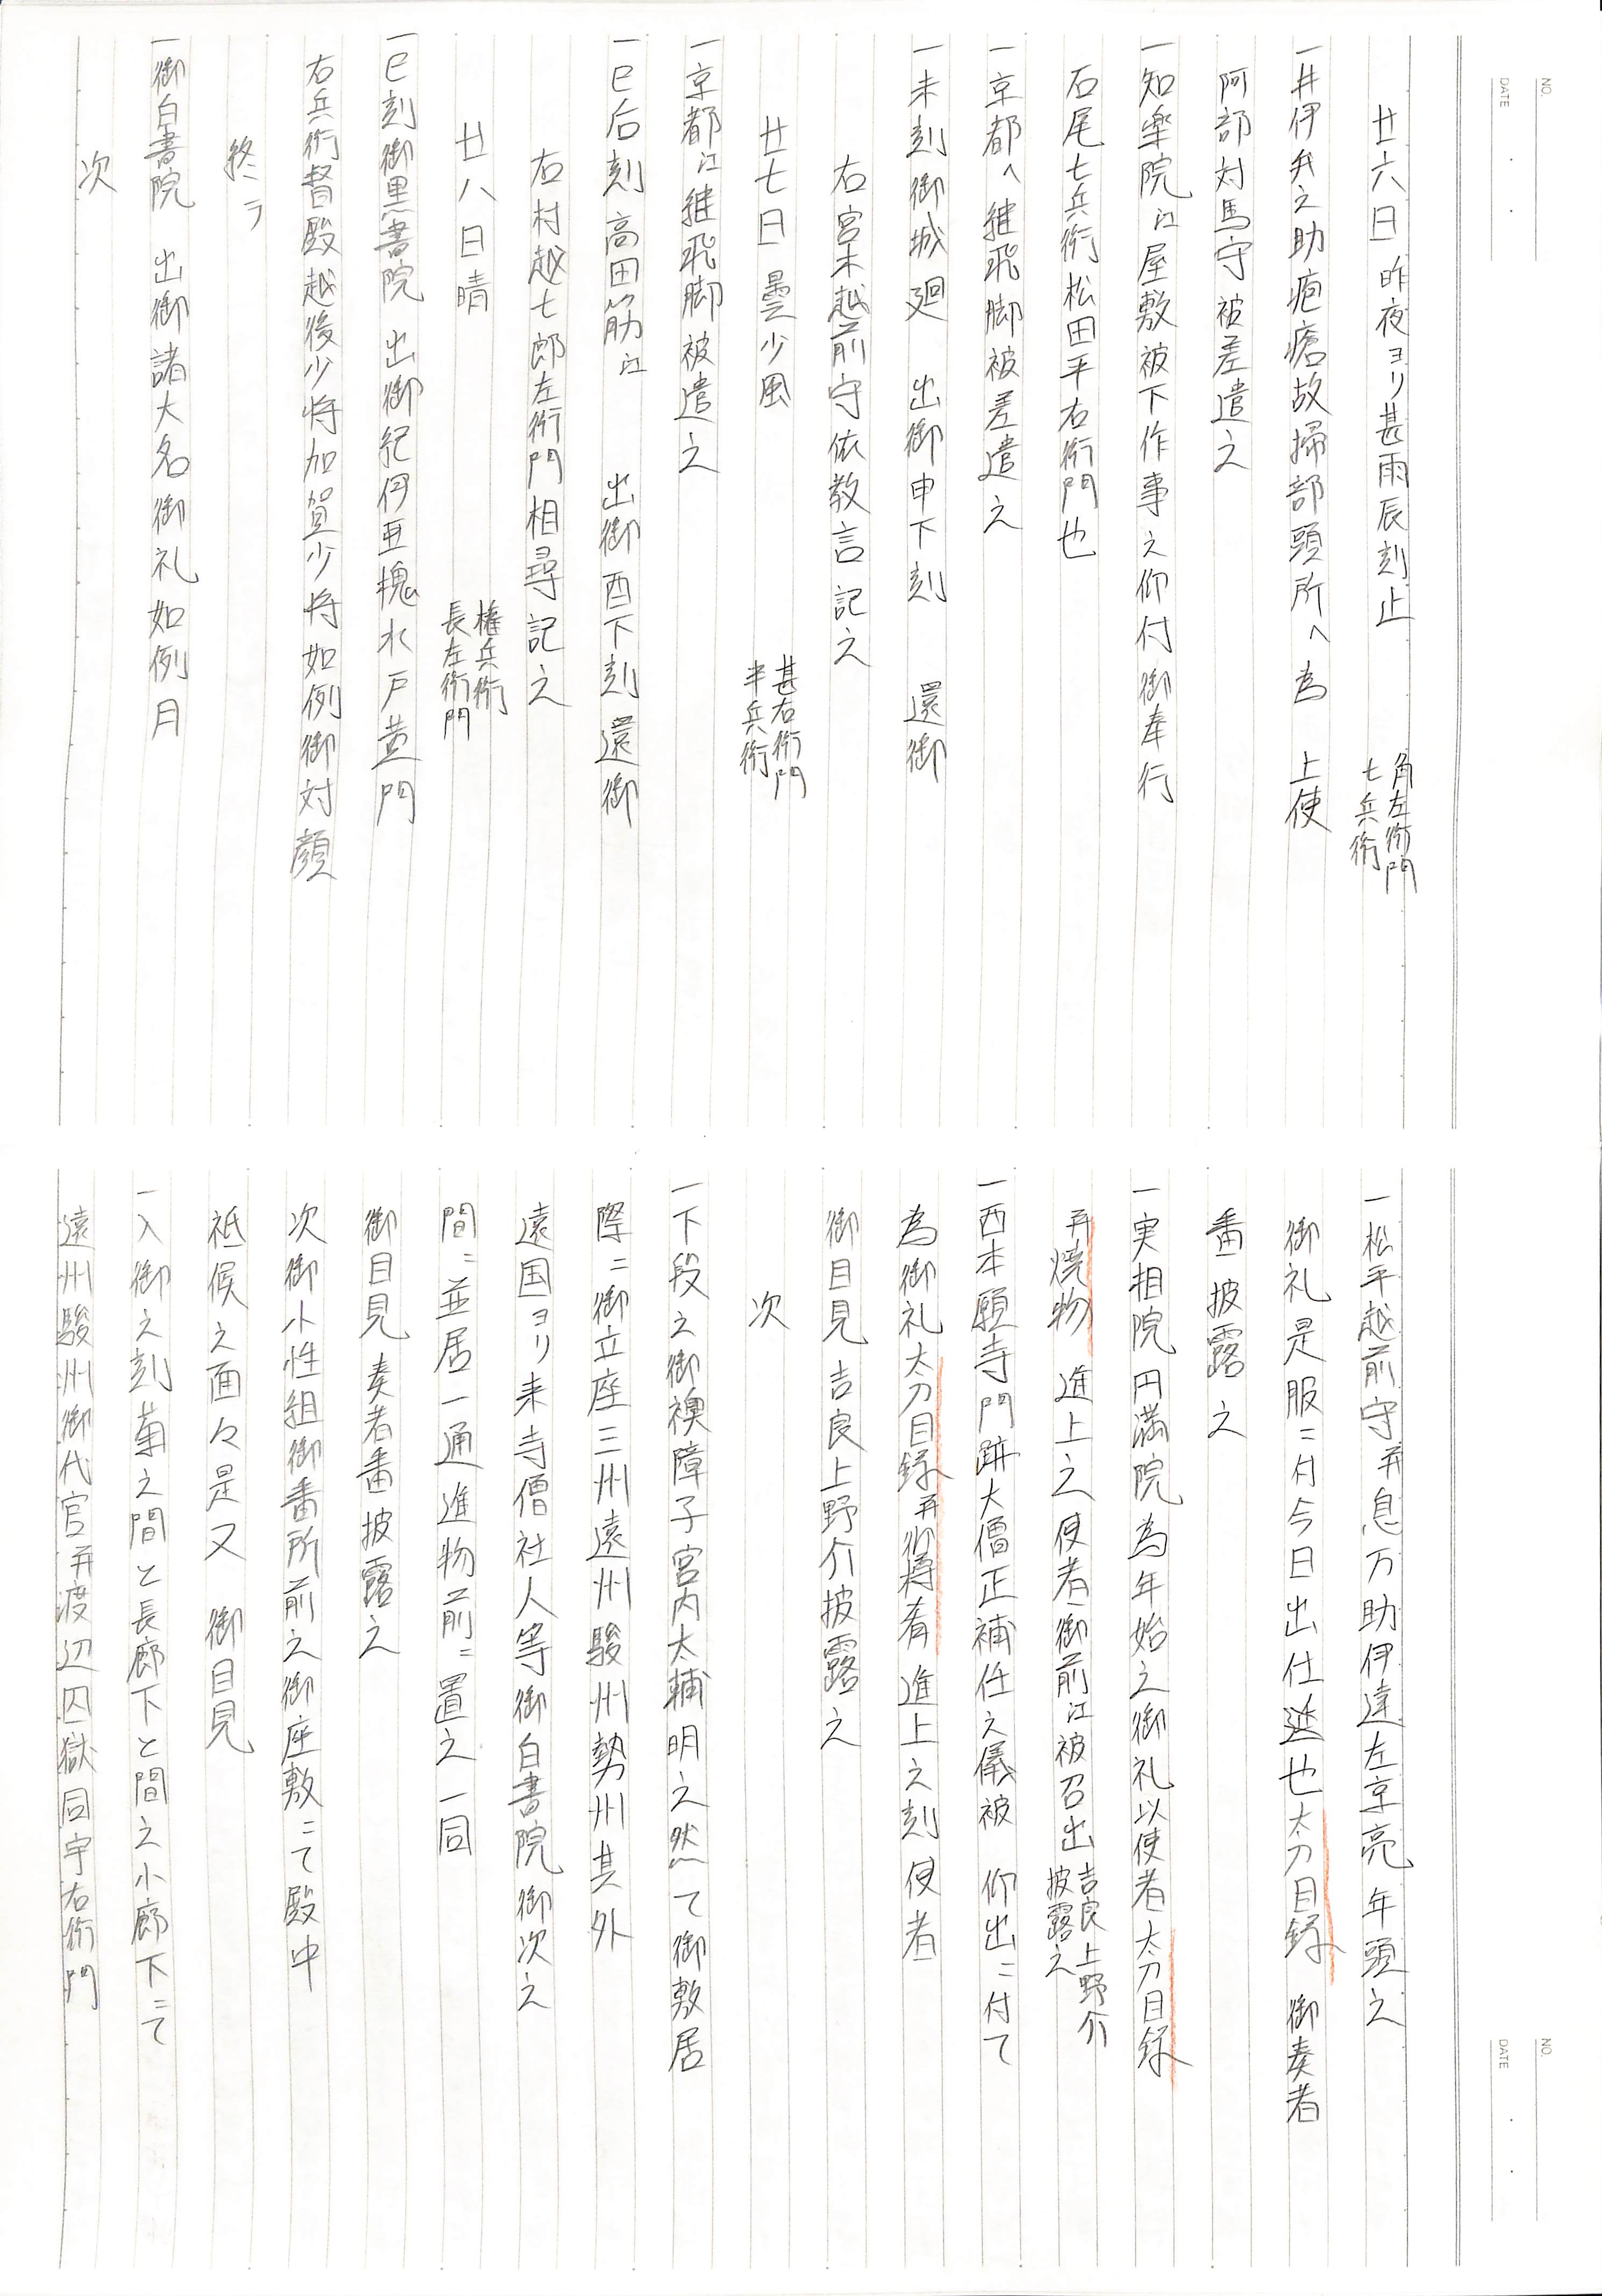 NO.
DATE
廿六日 昨夜ヨリ甚雨辰刻止 角左衛門 七兵衛
一井伊弁之助疱瘡故掃部頭所へ為 上使
阿部対馬守被差遣之
一知楽院江屋敷被下作事之仰付御奉行
石尾七兵衛松田平右衛門也
一京都へ継飛脚被差遣之
一未刻御城廻 出御申下刻 還御
右宮木越前守依教言記之
廿七日 曇少風 甚右衛門 半兵衛
一京都江継飛脚被遣之
一巳后刻高田筋江 出御酉下刻還御
右村越七郎左衛門相尋記之
廿八日晴 権兵衛 長左衛門
一巳刻御黒書院 出御紀伊亜槐水戸黄門
右兵衛督殿越後少将加賀少将如例御対顔
終テ
一御白書院 出御諸大名御礼如例月
次
NO.
DATE
一松平越前守并息万助伊達左京亮年頭之
御礼是服ニ付今日出仕遂也太刀目録 御奏者
番披露之
一実相院円満院為年始之御礼以使者太刀目録
并焼物 進上之使者御前江被召出 吉良上野介 披露之
一西本願寺門跡大僧正補任之儀被 仰出ニ付て
為御礼太刀目録并 進上之刻使者
御目見吉良上野介披露之
次
一下段之御襖障子宮内太輔明之然て御敷居
際ニ御立座三州遠州駿州勢州其外
遠国ヨリ来寺僧社人等御白書院御次之
間ニ並居一通進物前ニ置之一同
御目見奏者番披露之
次御小性組御番所前之御座敷ニて殿中
祗候之面々是又 御目見
一入御之刻菊之間と長廊下と間之小廊下ニて
遠州駿州御代官并渡辺囚獄同宇右衛門